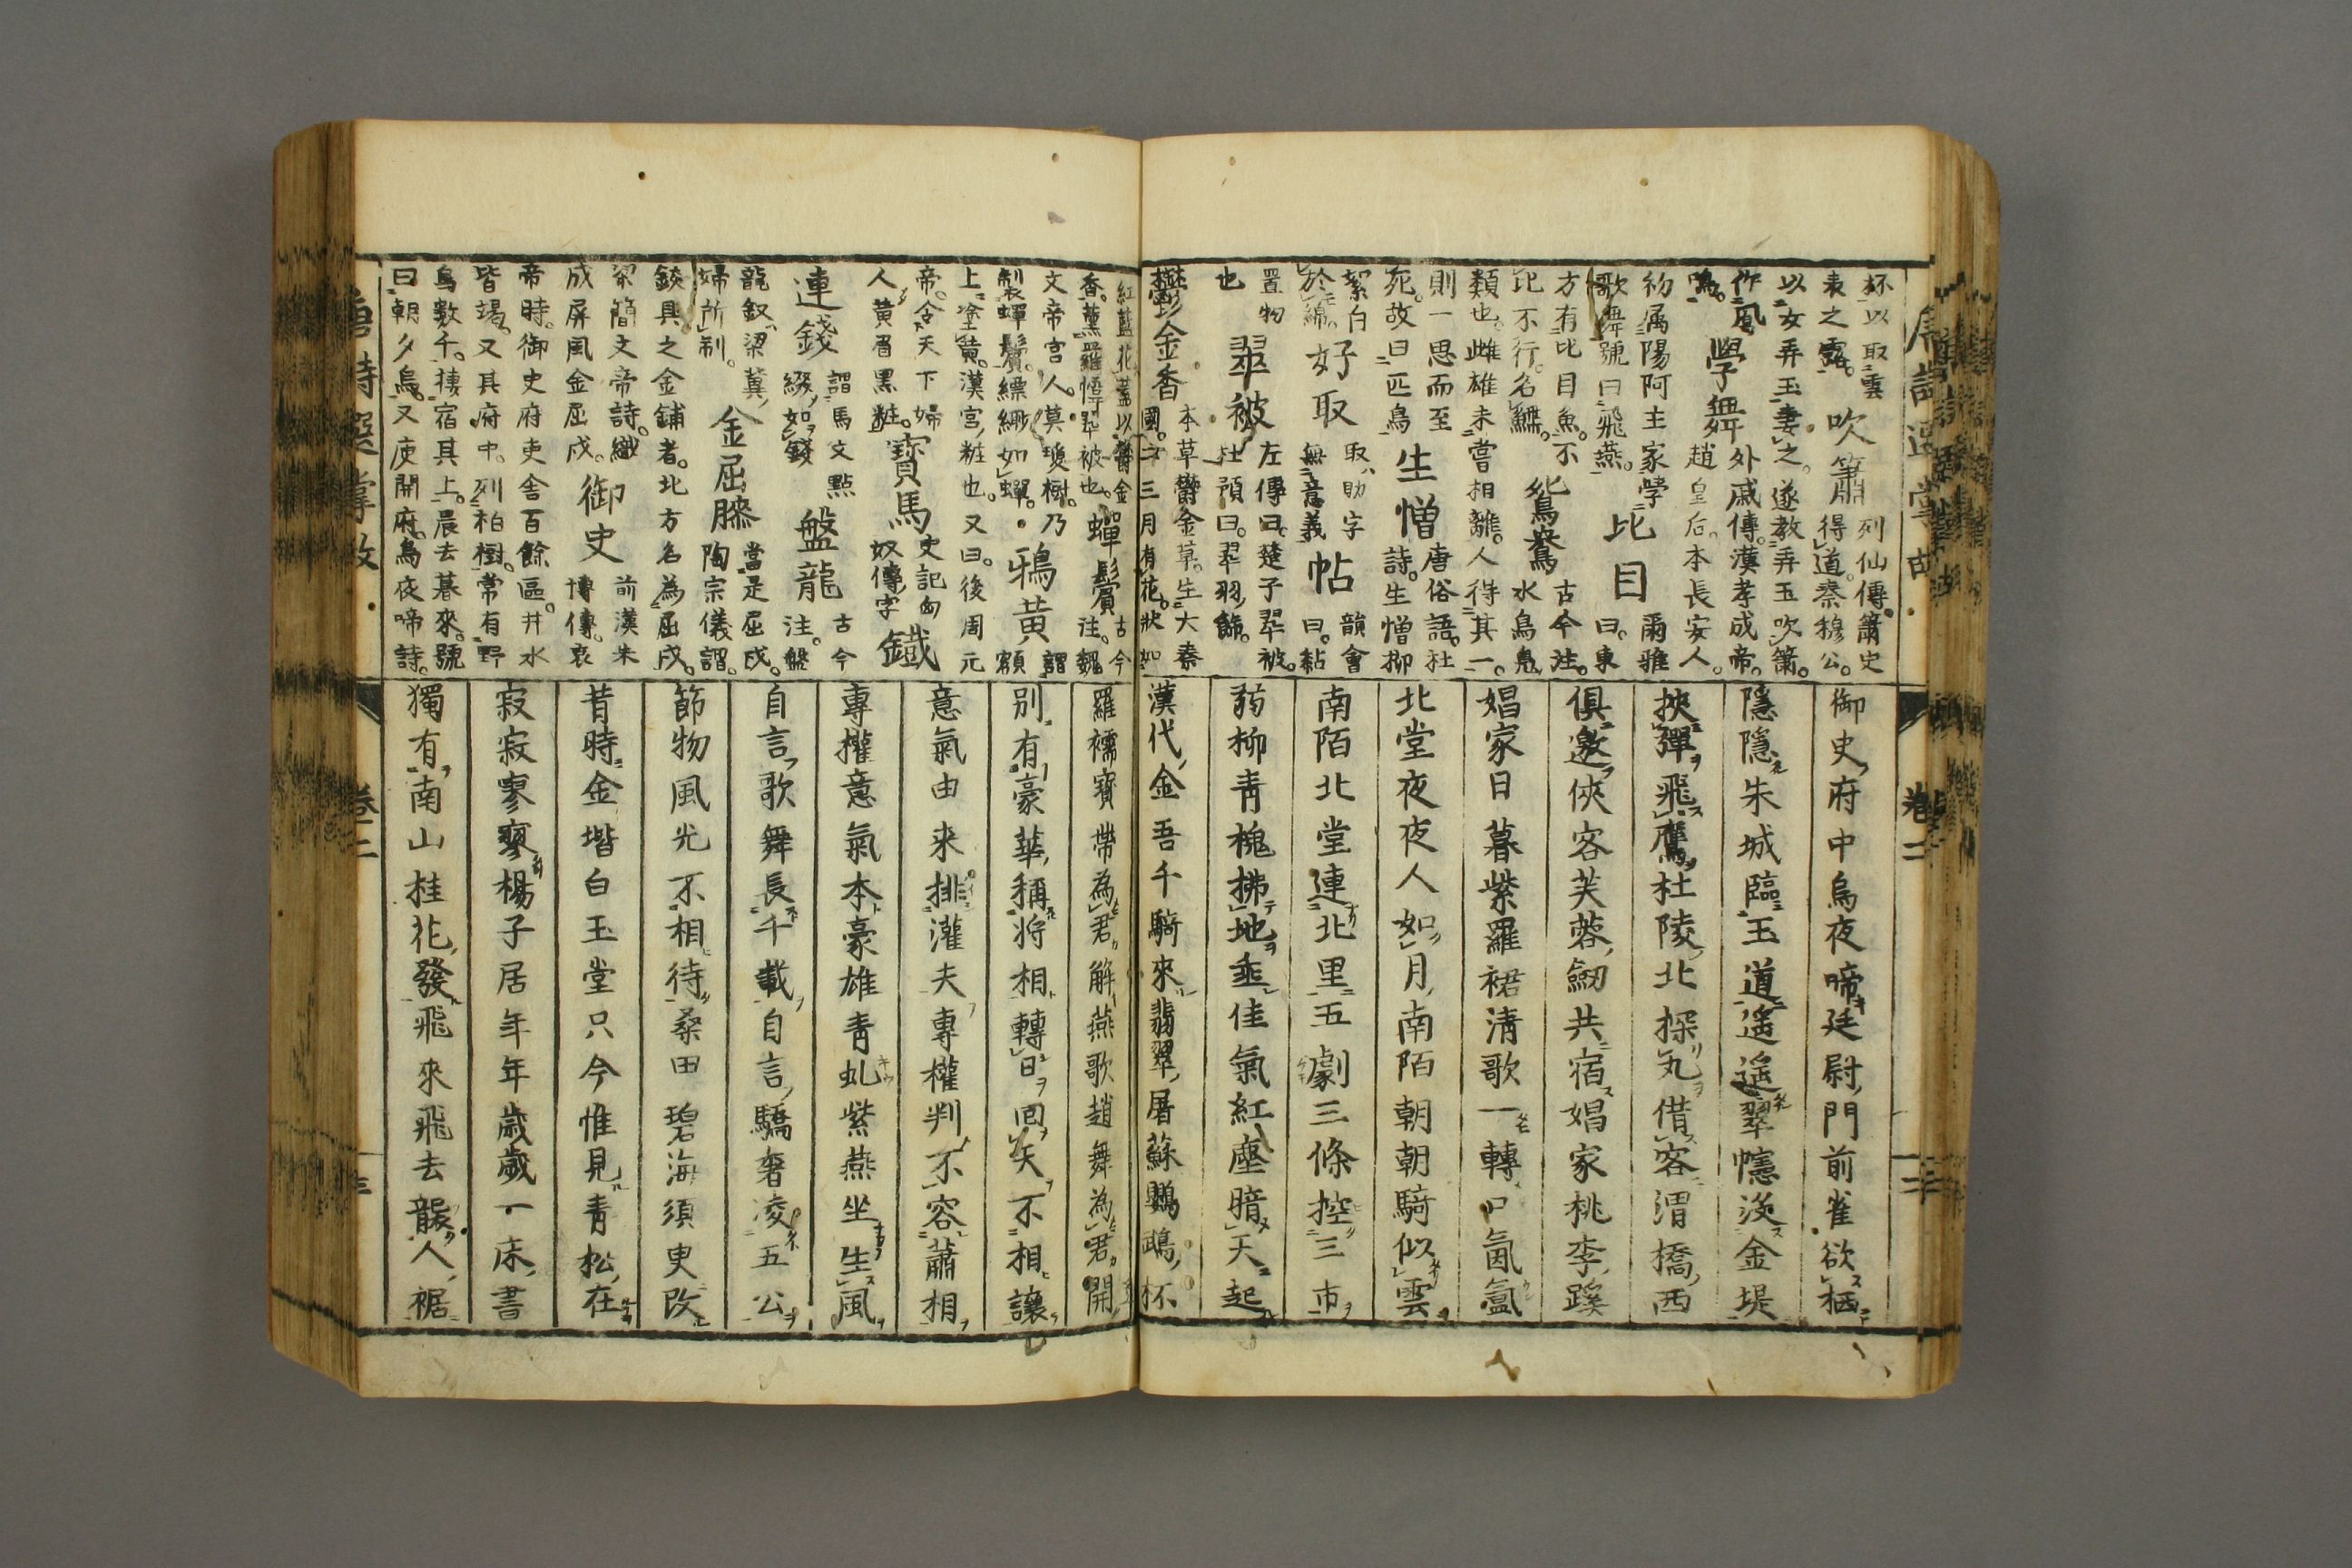 杯以取雲
表之露。吹簫列仙傳。簫史
得道。秦穆公。
以女弄玉妻之。遂教弄玉吹簫。
作鳳
鳴。學舞外戚傳。漢孝成帝。
趙皇后。本長安人。
初属陽阿主家學
歌舞號曰飛燕。比目爾雅
曰。東
方有比目魚。不
比不行。名鰈。鴛鴦古今注。
水鳥鳧
類也。雌雄未嘗相離。人得其一。
則一思而至
死。故曰匹鳥生憎唐俗語。杜
詩。生憎柳
絮白
於綿。好取取、助字
無意義帖韻會
曰。黏
置物
也翠被左傳曰。楚子翠被。
杜預曰。翠羽飾。
鬱金香本草鬱金草。生大秦
國。二三月有花。狀如
御史府中烏夜啼廷尉門前雀欲栖
隱隱朱城臨玉道遙遙翠幰没金堤
挾彈飛鷹杜陵北探丸借客渭橋西
俱邀俠客芙蓉劒共宿娼家桃李蹊
娼家日暮紫羅裙清歌一轉口氤氳
北堂夜夜人如月南陌朝朝騎似雲
南陌北堂連北里五劇三條控三市
弱柳青槐拂地垂佳氣紅塵暗天起
漢代金吾千騎來翡翠屠蘇鸚鵡杯
紅藍花。蓋以鬱金
香。薰羅幃翠被也。蟬鬢古今
注。魏
文帝宮人。莫瓊樹。乃
製蟬鬢。縹緲如蟬。鴉黃謂
額
上塗黃。漢宮粧也。又曰。後周元
帝。令天下婦
人黄眉黒粧。寶馬史記匈
奴傳字鐵
連錢謂馬文點
綴如錢盤龍古今
注。盤
龍釵、梁冀
婦所制。金屈膝當是屈戌。
陶宗儀謂。
鉸具之金鋪者。北方名為屈戌。
梁簡文帝詩。織
成屏風金屈戌。御史前漢朱
博傳。哀
帝時。御史府吏舎百餘區。井水
皆竭。又其府中。列柏樹。常有野
烏數千。捿宿其上。晨去暮來。號
曰朝夕烏。又庾開府。烏夜啼詩。
羅襦寳帶為君解燕歌趙舞為君開
別有豪華稱將相轉日回天不相讓
意氣由来排灌夫專權判不容蕭相
專權意氣本豪雄青虬紫燕坐生風
自言歌舞長千載自言驕奢凌五公
節物風光不相待桑田碧海須臾改
昔時金堦白玉堂只今惟見青松在
寂寂寥寥楊子居年年歲歲一床書
獨有南山桂花發飛來飛去襲人裾
唐詩選掌故
卷二